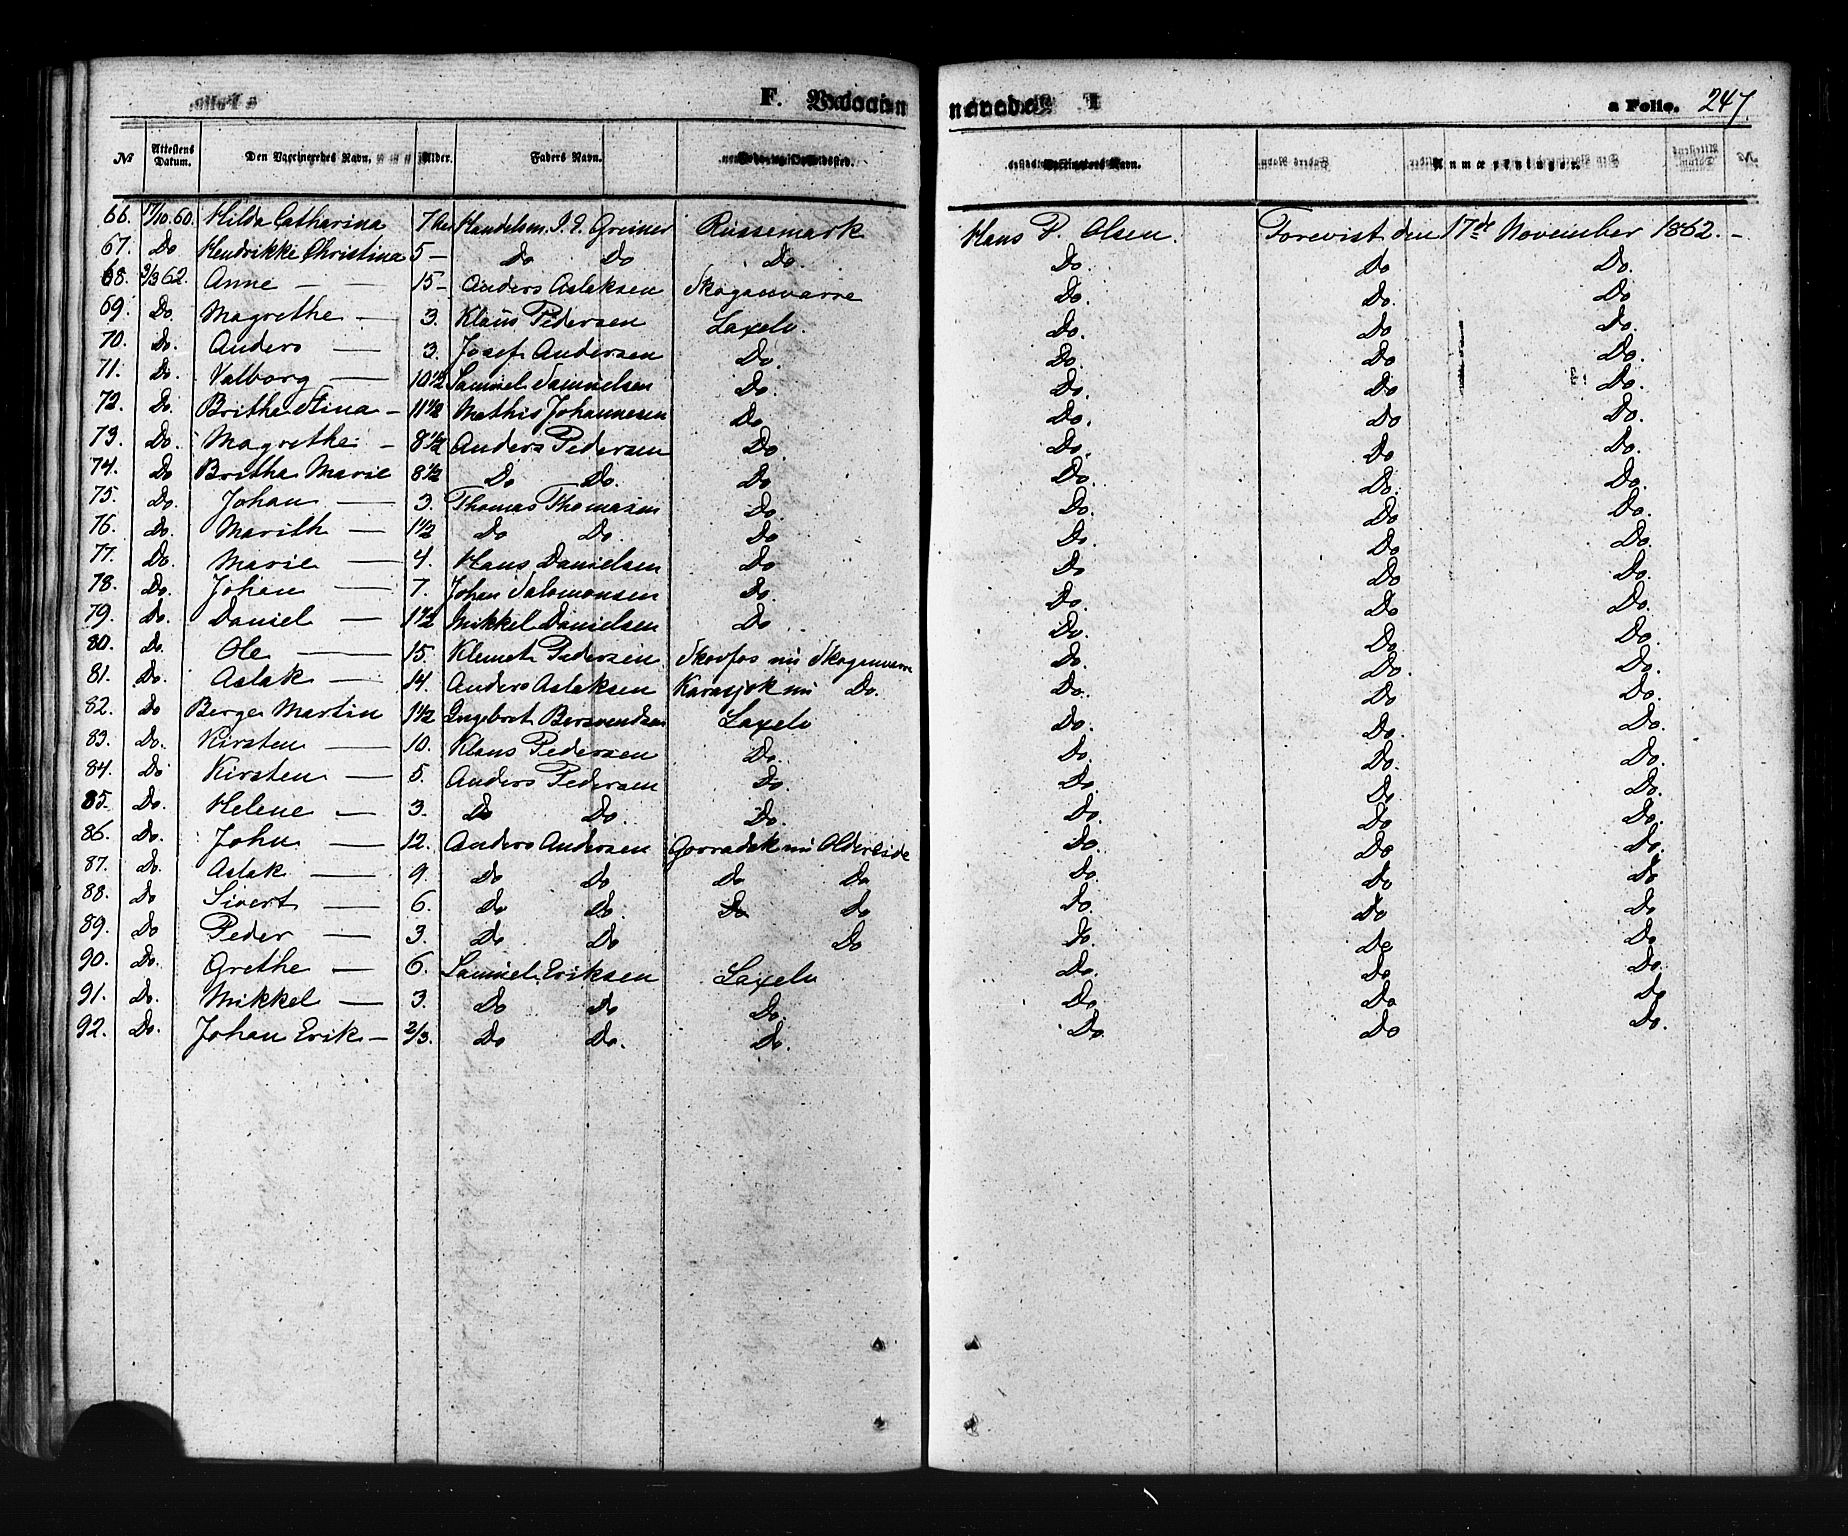 F. Vaccin nerede a Folio. 247.
№ Attestens Datum. Den Vaccineredes Navn. Alder. Faders Navn. Vaccinateurens Navn. Anmærkninger.
66. 17/10.60. Hilda Catharina 7 Handelsm. Greiner Russemark Hans P. Olsen. Forevist den 17de November 1862. –
67. Do Hendrikke Christina 5 – Do Do Do. Do. Do Do.
68. 2/3 62. Anne – – 15 – Anders Aslaksen Skoganvarre Do. Do. Do.
69. Do. Magrethe – 3. Klaus Pedersen Laxelv. Do. Do Do.
70. Do. Anders – 3. Josef Andersen Do. Do. Do Do.
71. Do. Valborg – 10 1/2 Samuel Samuelsen Do. Do. Do Do.
72. Do. Brithe Stina – 11 1/2 Mathis Johannesen Do. Do. Do Do.
73. Do. Magrethe – 8 1/2 Anders Pedersen Do. Do. Do Do.
74. Do Brithe Marie 8 1/2 Do Do. Do Do. Do. Do.
75. Do. Johan – 3. Thomas Thomasen Do. Do. Do Do.
76. Do. Marith – 1 1/2 Do Do. Do Do. Do Do.
77. Do. Marie – 4. Hans Danielsen Do Do. Do Do.
78. Do. Johan – 7. Johan Salomonsen Do. Do. Do Do.
79. Do. Daniel – 1 1/2 Mikkel Danielsen Do Do. Do Do.
80. Do. Ole – 15. Klemet Pedersen Skovfos nu Skoganvarre Do. Do. Do.
81. Do. Aslak – 14. Anders Aslaksen Karasjok nu Do. Do. Do Do.
82. Do Berge Martin 1 1/2 Ingebret Bersvendsen Laxelv Do. Do. Do.
83. Do. Kirsten – 10. Klaus Pedersen Do. Do. Do. Do.
84. Do Kirsten – 5. Anders Pedersen Do. Do. Do Do.
85. Do. Helene – 3. Do Do. Do. Do. Do Do.
86. Do. John – 12. Anders Andersen nu Do. Do Do.
87. Do. Aslak – 9. Do Do Do Do Do. Do Do
88. Do Sivert – 6. Do Do. Do Do Do. Do Do
89. Do Peder – 3. Do Do Do Do. Do Do
90. Do. Grethe – 6. Samuel Eriksen Laxelv Do. Do Do.
91. Do. Mikkel – 3. Do Do Do. Do Do Do
92. Do. Johan Erik – 2/3. Do Do. Do. Do. Do Do.